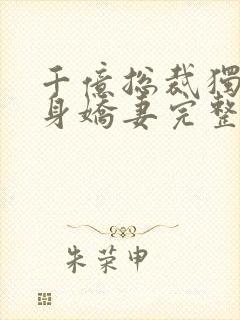 千億總裁獨
身嬌妻完整
朱荣申